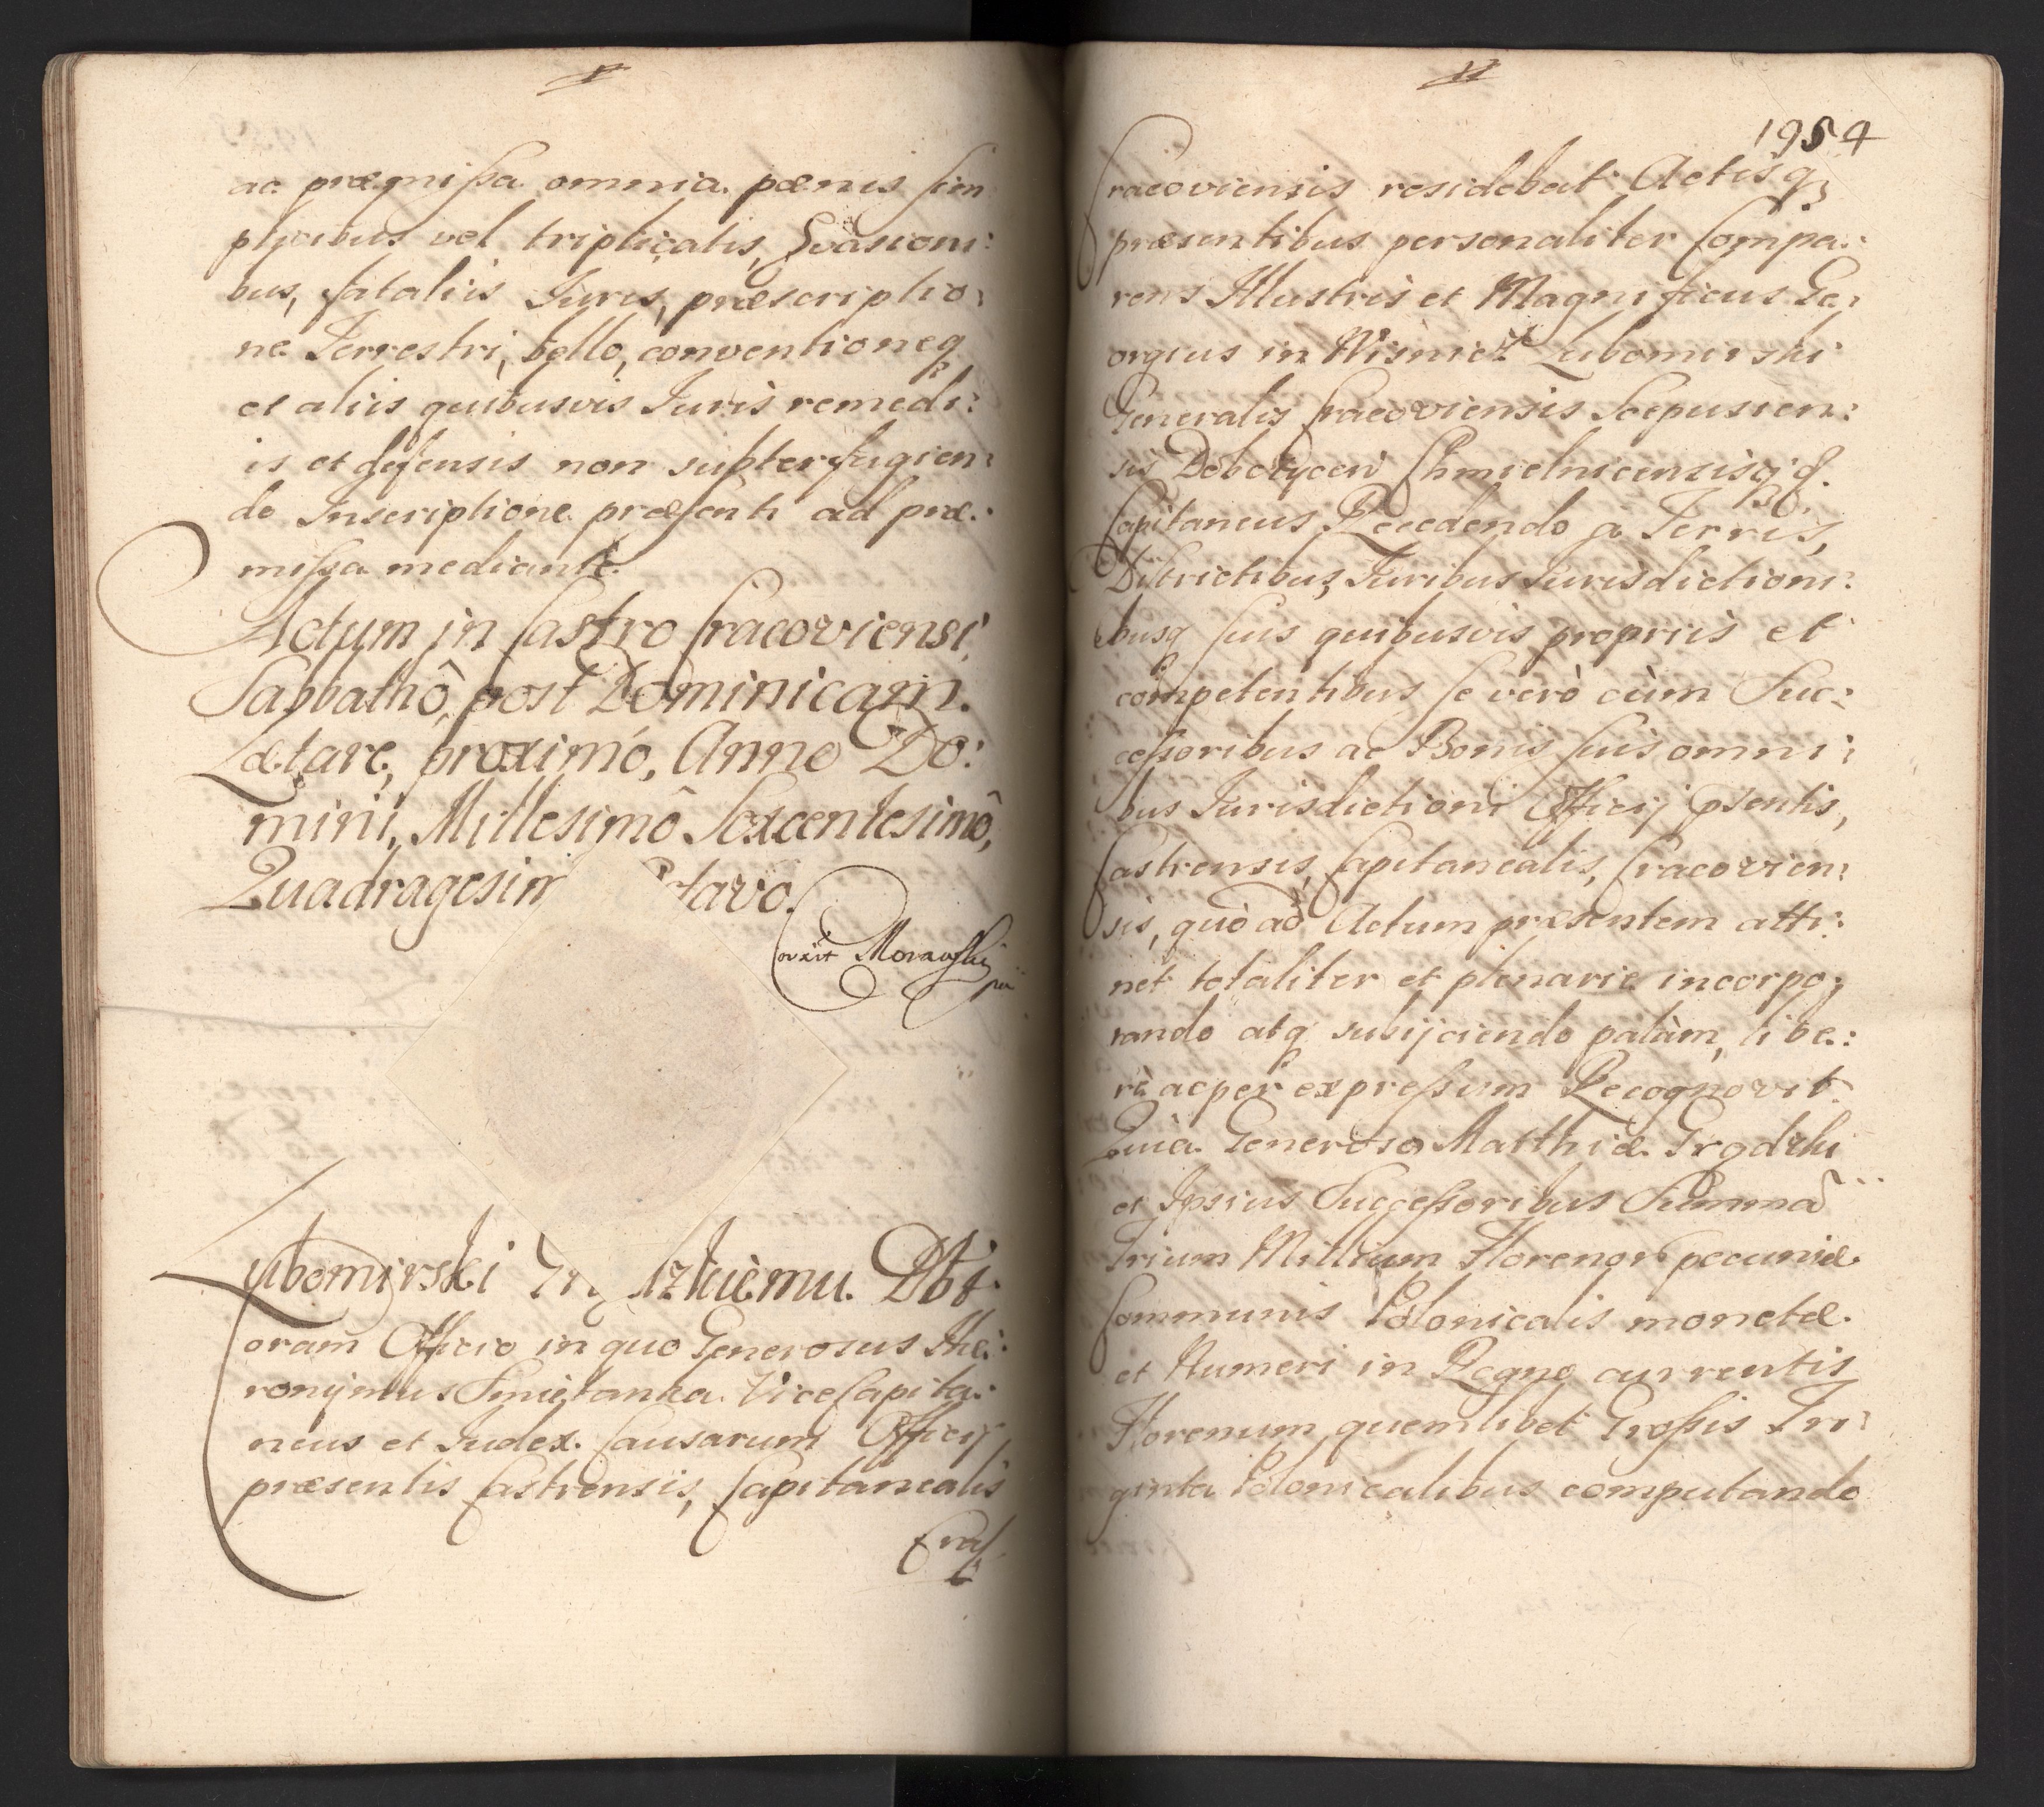 ac præmissa omnia pœnis sim
plicibus vel triplicatis, Evasioni:
bus, fataliis Iuris, præscriptio:
ne Terrestri, bello, conventioneq
et aliis quibusvis Iuris remedi:
is et defensis non subterfugien:
do Inscriptione præsenti ad præ:
missa mediante.
Actum in Castro Cracoviensi,
Sabbathô post Dominicam
Lætare, proximô, Anno Do:
mini, Millesimô Sexcentesimô,
Quadragesim ctavo.
Corexit Morawski
Lubomirski Obt.
Coram Officio in quo Generosus Hie:
ronymus Smietanka ViceCapita:
neus et Iudex Causarum Officij
præsentis Castrensis, Capitanealis
Crac
1954
Cracoviensis residebat Actisq;
præsentibus personaliter Compa:
rens Illustris et Magnificus Ge:
orgius in Wisnicz Lubomirski
Generalis Cracoviensis Scepusien:
sis Dobczycen Chmielnicensisq; &.
Capitaneus Recedendo à Terris,
Districtibus, Iuribus Iurisdictioni:
busq suis quibusvis propriis et
competentibus se verò cùm Suc:
cessoribus ac Bonis suis omni:
bus Iurisdictioni Officij pśentis,
Castrensis, Capitanealis, Cracovien:
sis, quò ad Actum præsentem atti:
net totaliter et plenarie incorpo:
rando atq subijciendo palàm, libe:
rè ac per expressum Recognovit
Quia Generoso Matthiæ Grodzki
et Ipsius Successoribus Summã
Trium Millium Florenor pecuniæ
Communis Polonicalis monetæ
et Numeri in Regno currentis
Florenum quemlibet Grossis Tri:
ginta Polonicalibus computando